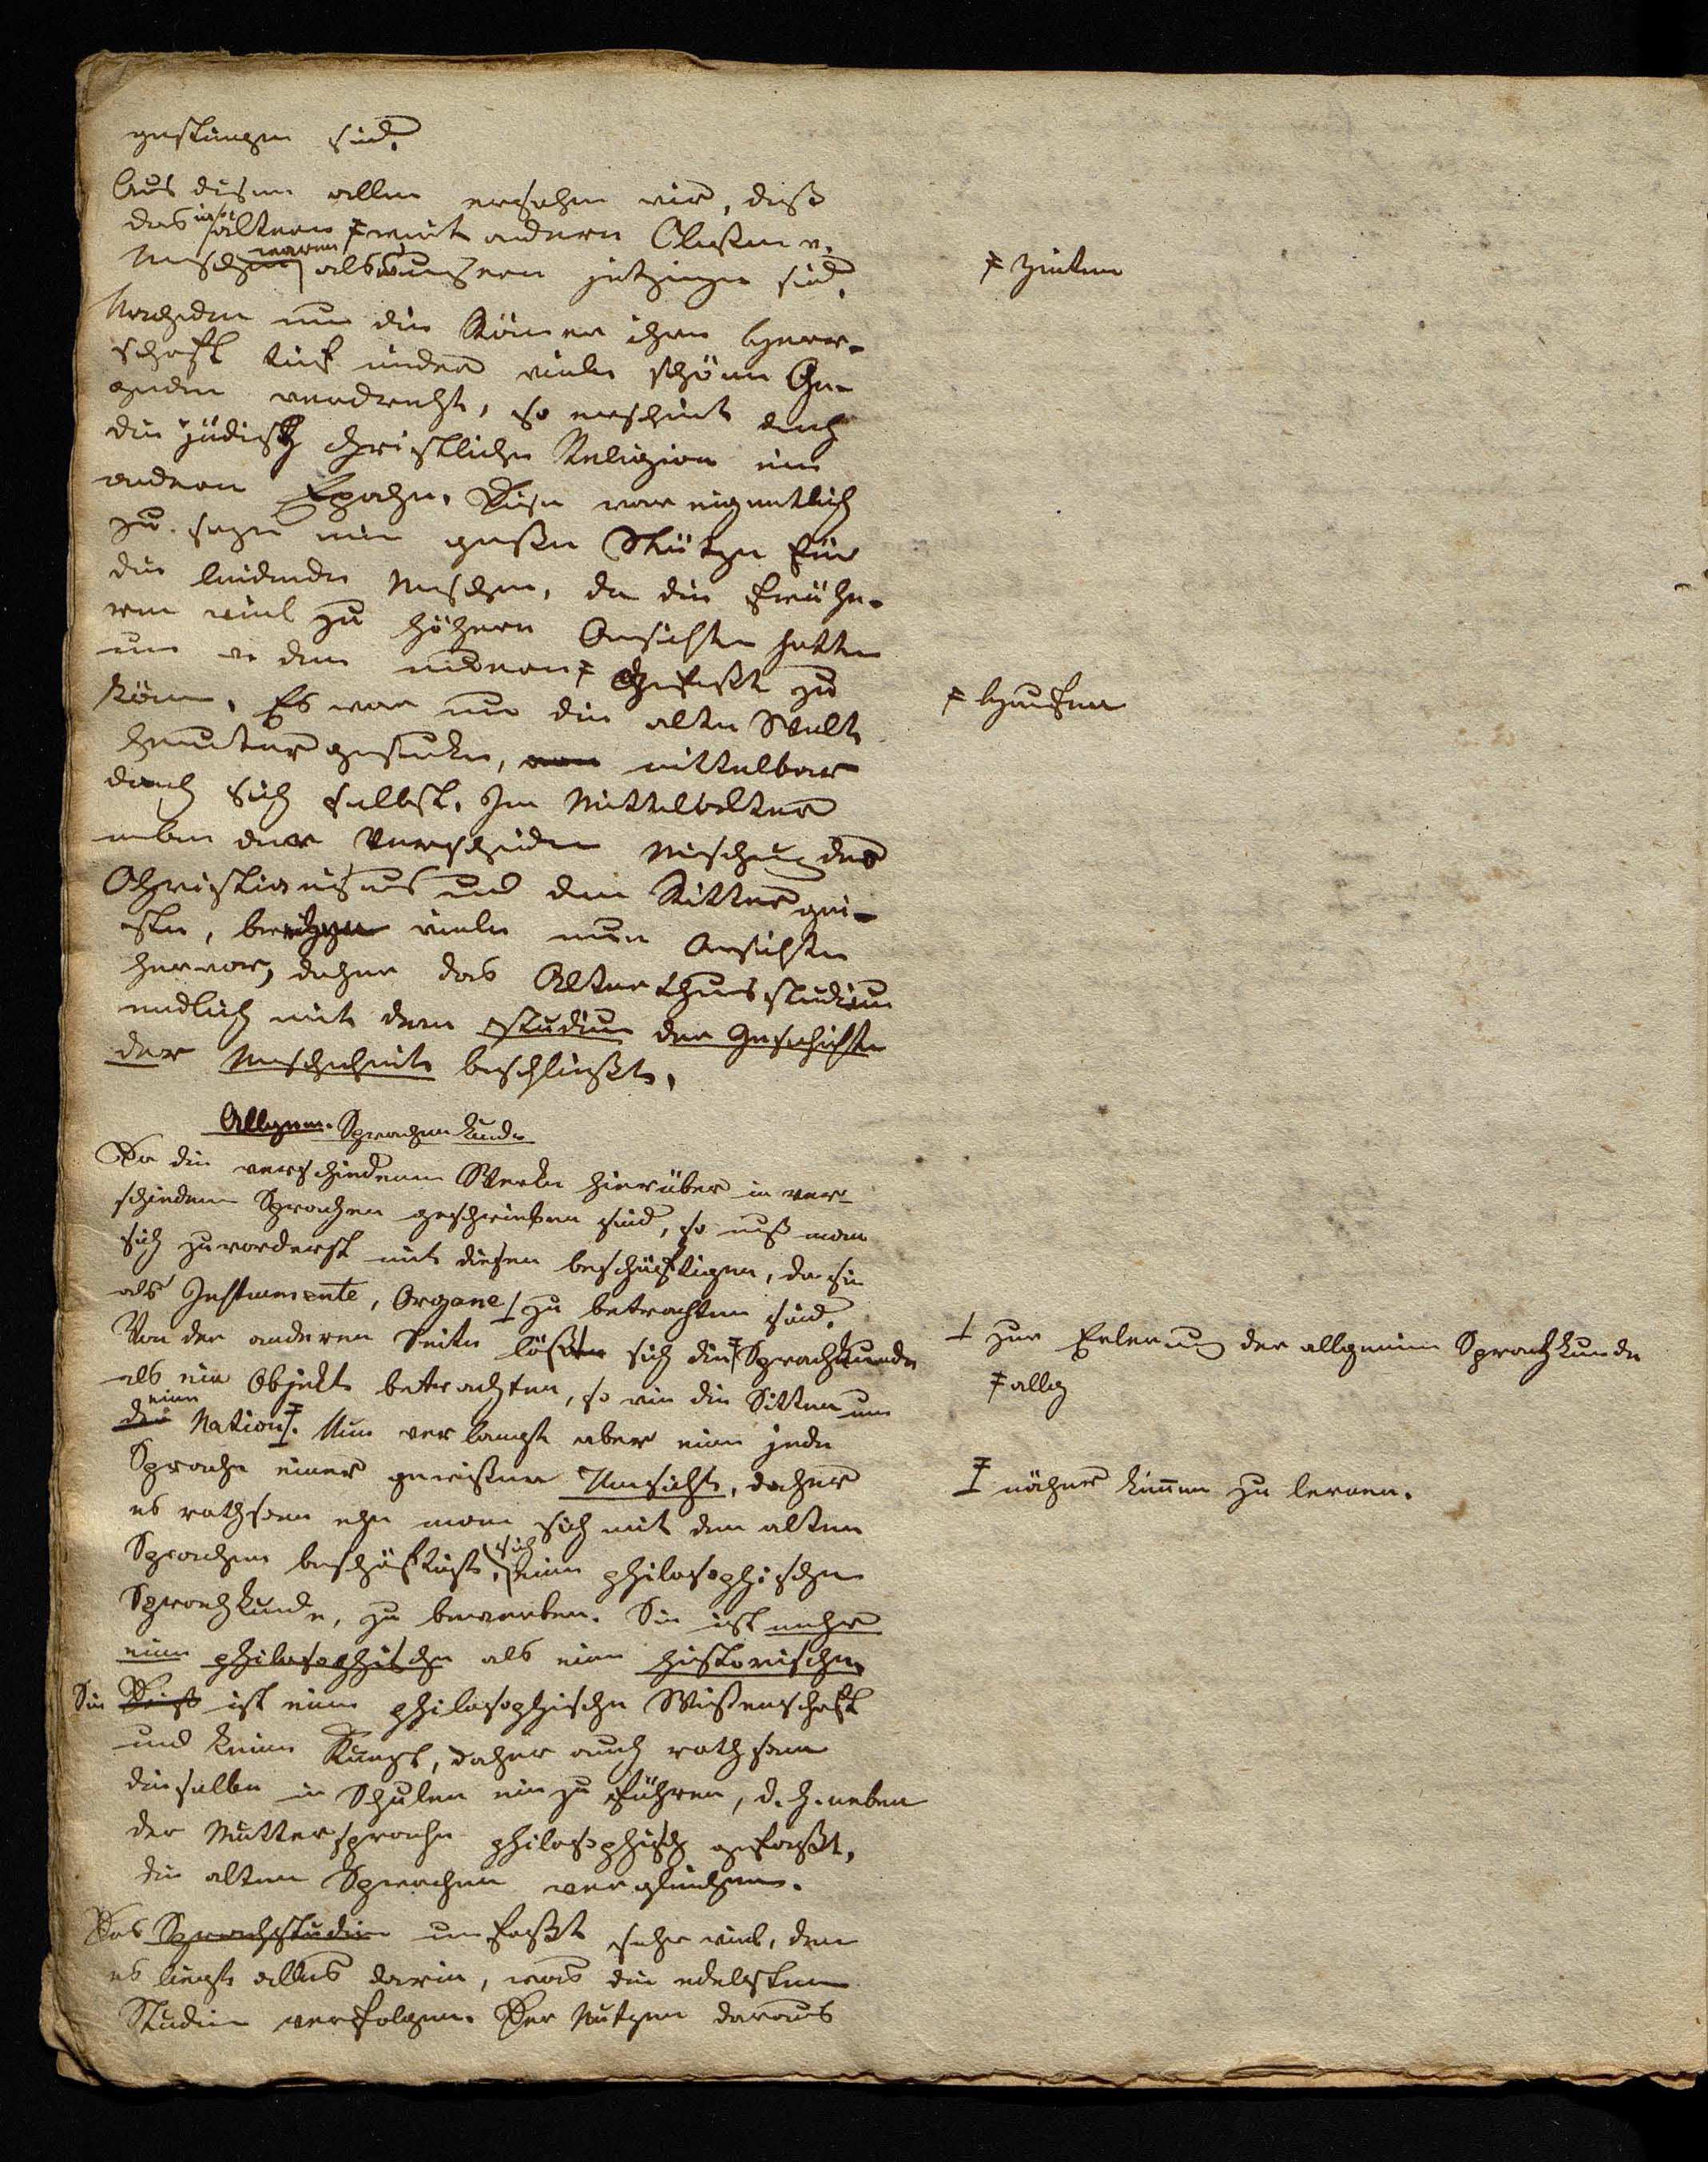 gestiegen sind.
Aus diesem allen ersehen wir, daß
das in ältern ≠ mit andern Classen v.
Menschen waren als unsern jetzigen sind.
Nachdem nun die Römer ihre Herr-
schaft tief in der viele schöne Ge-
genden verdrehte, so erscheint durch
die jüdisch christliche Religion eine
andere Epoche. Diese war eigentlich
zu sagen eine große Stütze für
die leidende Menschen, da die frühe-
ren viel zu höhern Ansichten hatten
um v den niedern ≠ gefaßt zu
könen. Es war nun die alte Welt
heruntergesunken, mittelbar
durch sich selbst. Im Mittelalter
neben der Mischung des
Christianismus und dem Rittergei-
ste, viele neue Ansichten
hervor, daher das Alterthumsstudium
endlich mit dem Studium der Geschichte
der Menschheit beschließt.
Allgem. Sprachenkunde
Da die verschiedenen Werke hierüber in ver-
schiedenen Sprachen geschrieben sind, so muß man
sich zuvorderst mit diesen beschäftigen, da sie
als Instrumente, Organe ⊥ zu betrachten sind.
Von der anderen Seite läßt sich die ≠ Sprachkunde
als ein Objekt betrachten, so wie die Sitten um
eine Nation ‡. Nun verlangt aber eine jede
Sprache einer gewißen Umsicht, daher
es rathsam ehe man sich mit den alten
Sprachen beschäftigt, sich eine philosophische
Sprachkunde, zu bewerben. Sie ist mehr
eine philosophische als eine historische.
Sie ist eine philosophische Wissenschaft
und keine Kunst, daher auch rathsam
dieselbe in Schulen ein zu führen, d. h. neben
der Muttersprache philosophisch gefaßt,
die alten Sprachen verglichen.
Das Sprachstudium umfaßt sehr viel, denn
es liegt alles darin, was die edelsten
Studien verfolgen. Der Nutzen daraus
≠ Zeiten
≠ Haufen
⊥ zur Erlernung der allgemeinen Sprachkunde
≠ allg
‡ näher kennen zu lernen.